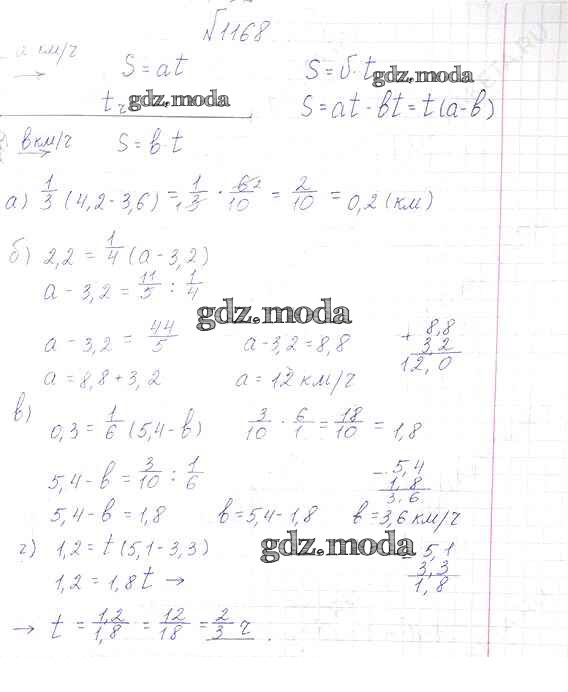 №1168
a км/ч S = at S = v · t
t ч gdz.moda gdz.moda
S = at - bt = t(a-b)
в км/ч S = b · t
а) 1/3 (4,2-3,6) = 1/3 · 6/10 = 2/10 = 0,2 (км)
б) 2,2 = 1/4 (a-3,2)
a-3,2 = 11/5 : 1/4
gdz.moda
a-3,2 = 44/5 a-3,2 = 8,8 + 8,8
3,2
a = 8,8 + 3,2 a = 12 км/ч 12,0
в) 0,3 = 1/6 (5,4-b) 3/10 · 6/1 = 18/10 = 1,8
5,4-b = 3/10 : 1/6 - 5,4
1,8
3,6
5,4-b = 1,8 b = 5,4-1,8 b = 3,6 км/ч
г) 1,2 = t (5,1-3,3) gdz.moda 5,1
3,3
1,2 = 1,8t → 1,8
→ t = 1,2/1,8 = 12/18 = 2/3 ч.